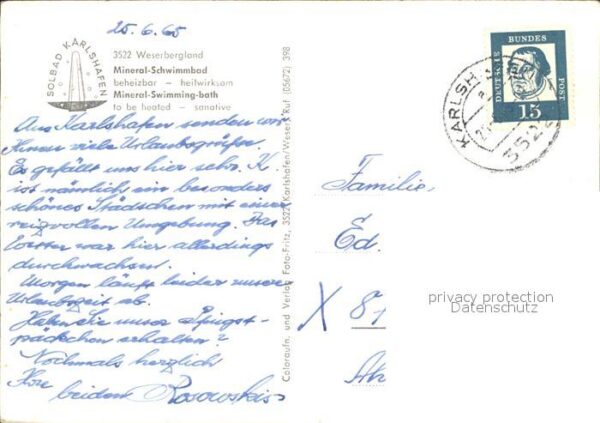 25.6.65
SOLBAD KARLSHAFEN
3522 Weserbergland
Mineral-Schwimmbad
beheizbar – heilwirksam
Mineral-Swimming-bath
to be heated – sanative
Aus Karlshafen senden wir
Ihnen viele Urlaubsgrüße.
Es gefällt uns hier sehr. K.
ist nämlich ein besonders
schönes Städtchen mit einer
reizvollen Umgebung. Das
Wetter war hier allerdings
durchwachsen.
Morgen läuft leider unsere
Urlaubszeit ab.
Haben Sie unser Pfingst-
päckchen erhalten?
Nochmals herzlich
Ihre
beiden Rosowskis
Coloraufn. und Verlag Foto-Fritz, 3522 Karlshafen/Weser, Ruf (05672) 398
DEUTSCHE
BUNDES
POST
15
KARLSH
3522
Familie
Ed.
X 81
privacy protection
Datenschutz